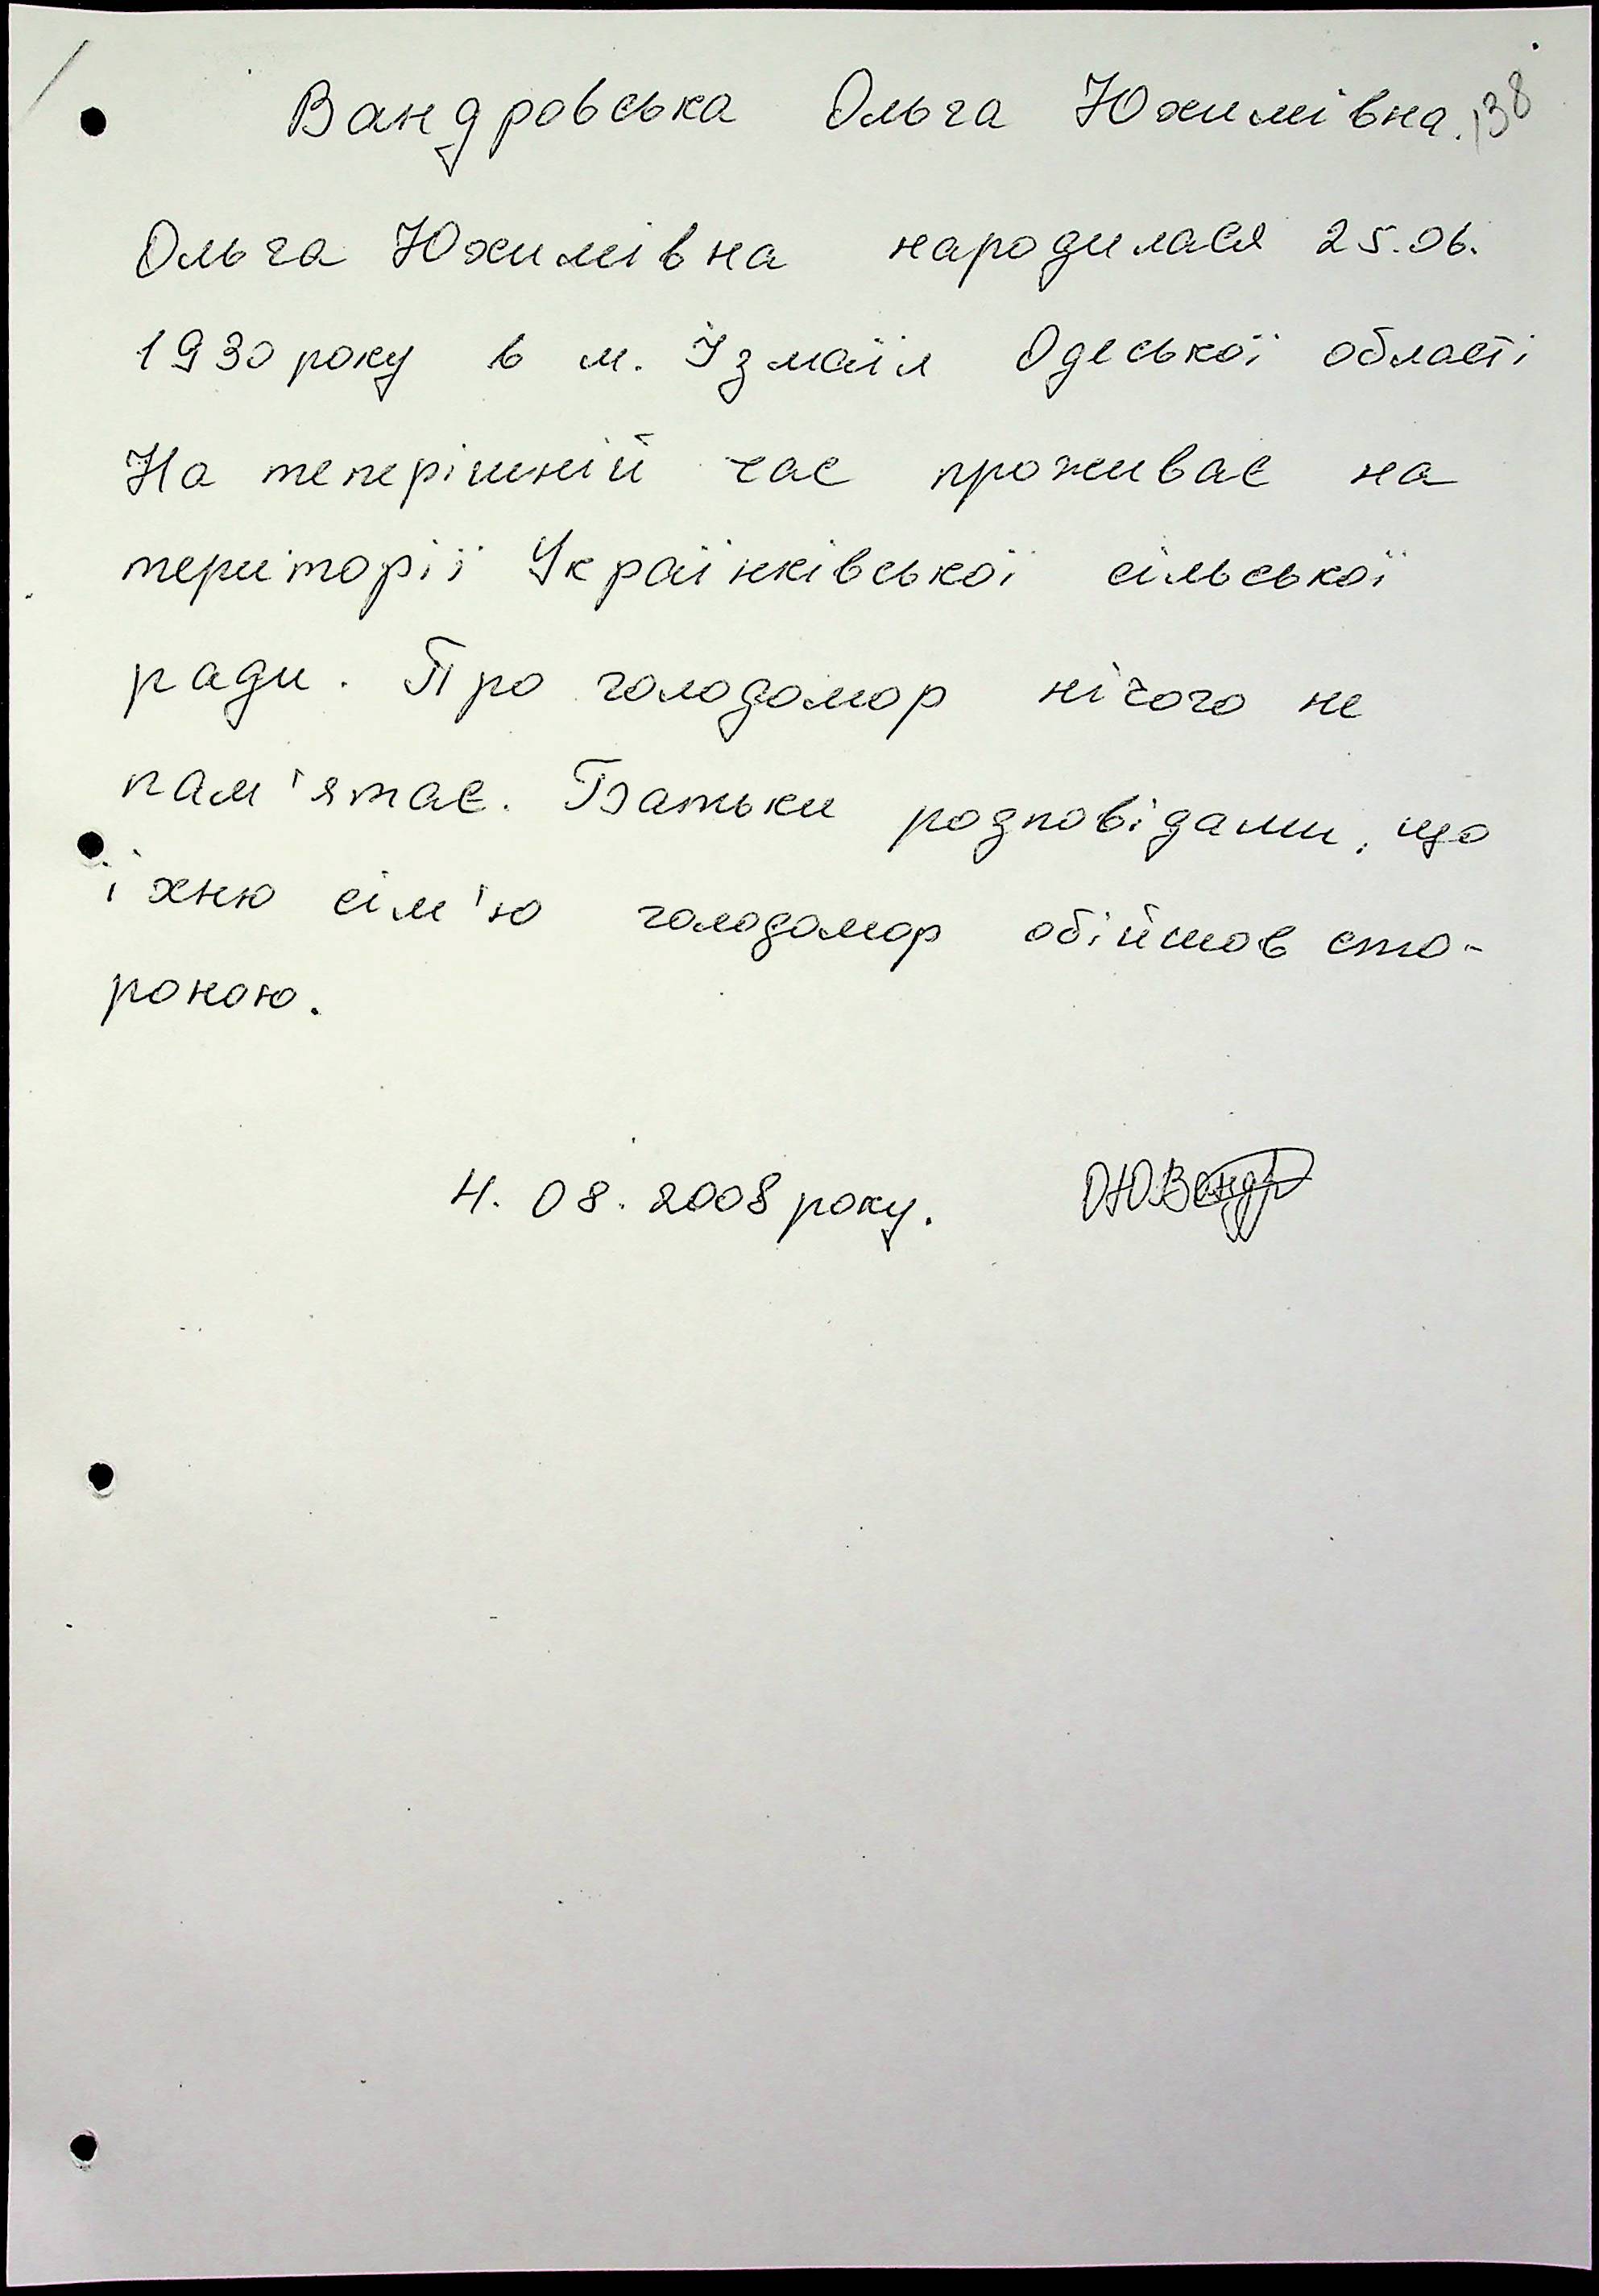 Вандровська Ольга Юхимівна. 138
Ольга Юхимівна народилася 25.06.
1930 року в м. Ізмаїл Одеської області
На теперішній час проживає на
території Українківської сільської
ради. Про голодомор нічого не
пам'ятає. Батьки розповідали, що
їхню сім'ю голодомор обійшов сто-
роною.
4. 08. 2008 року.